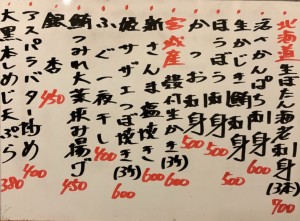 北海道 生ぼたん海老刺身(3本) 700
活〆かんぱち刺身 600
生かじき鮪刺身 500
ほうぼう刺身 500
かつお刺身 500
宮城産 殻付生かき(3ヶ) 600
新さんま塩焼き 600
姫サザエつぼ焼き(3ケ) 600
ふぐ一夜干し 400
鮪つみれ大葉来み揚げ 450
銀杏 450
アスパラバター炒め 400
大黒本しめじ天ぷら 380